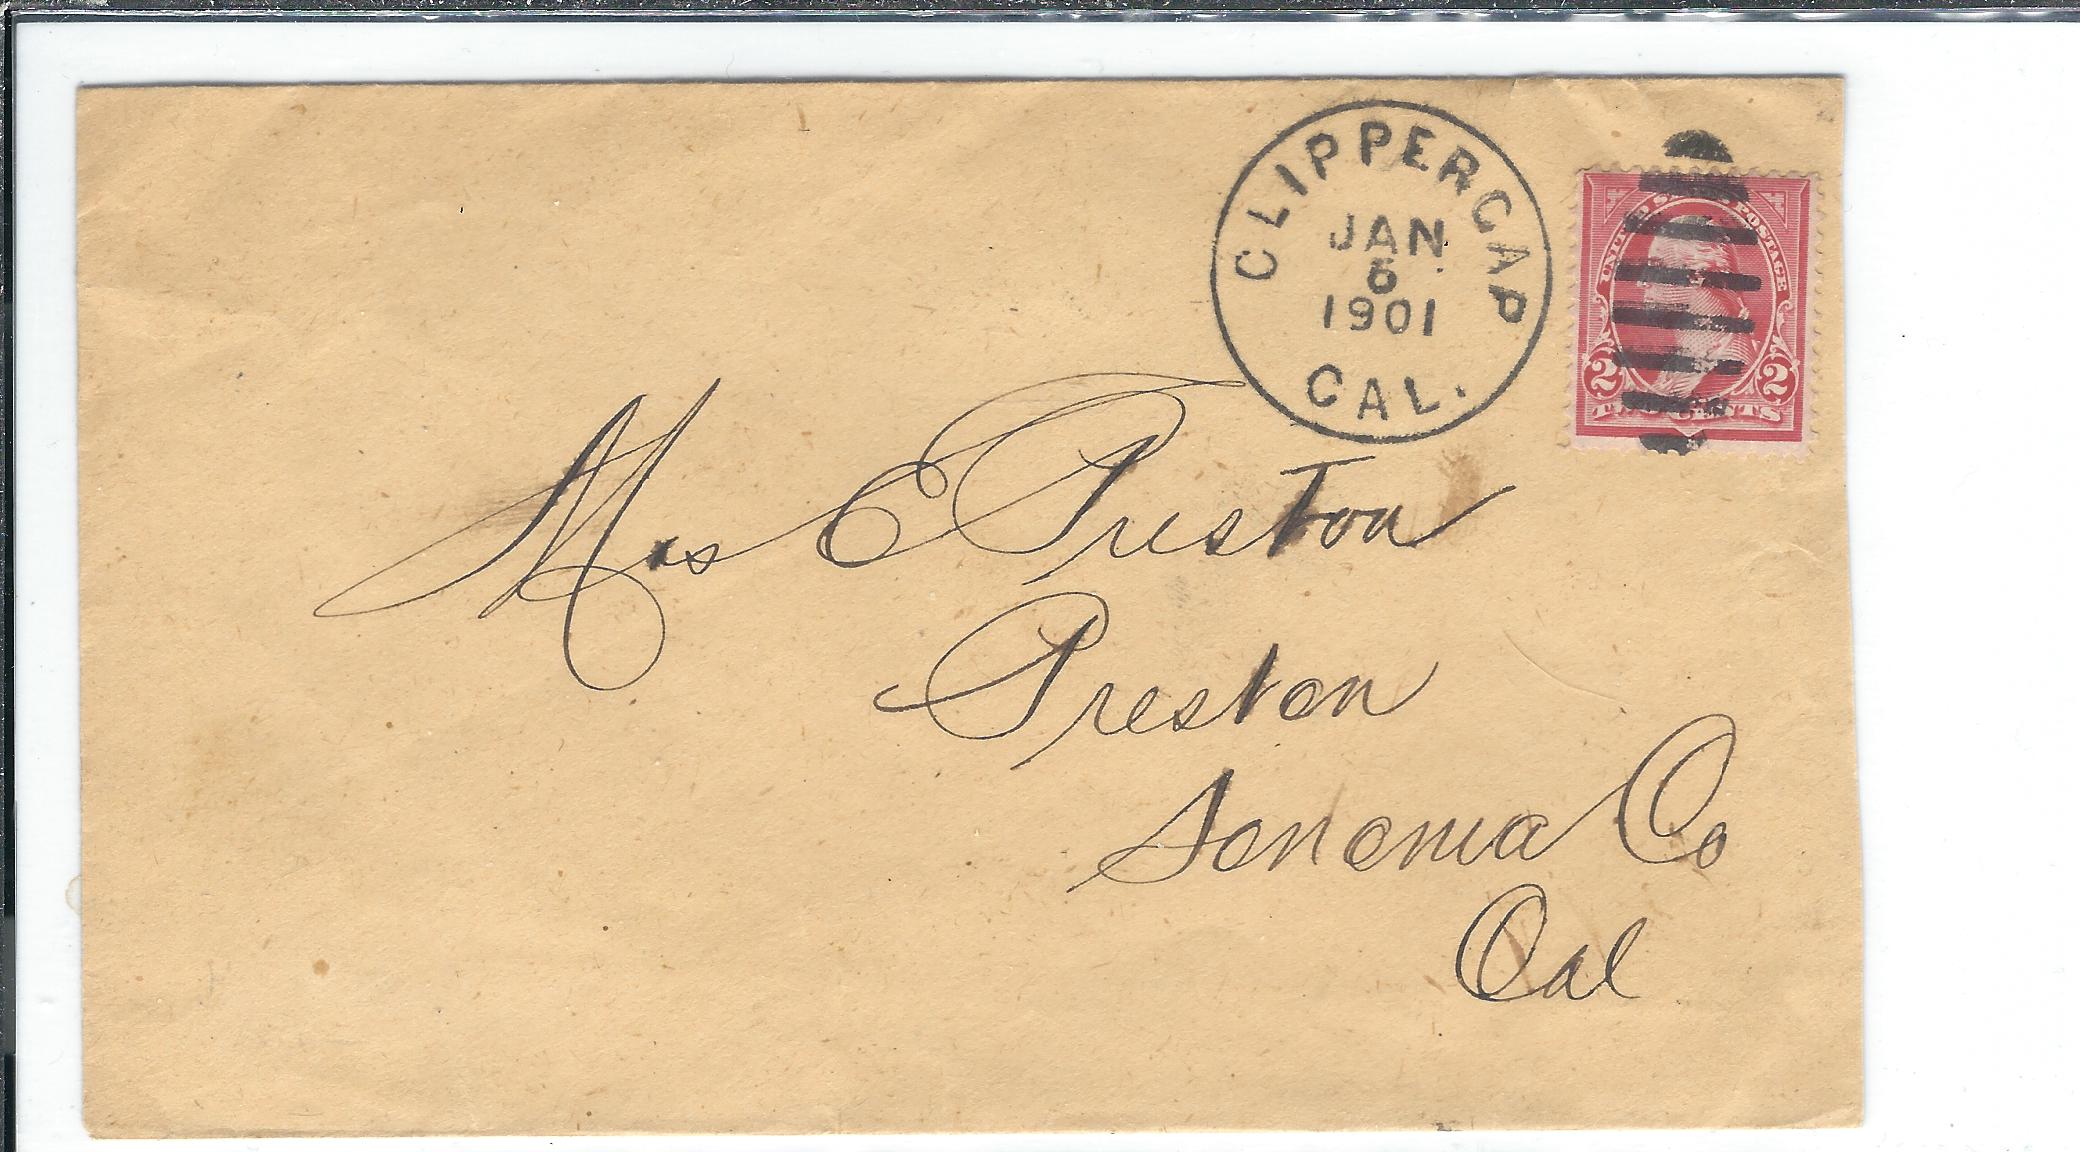 CLIPPERGAP
JAN
6
1901
CAL.
UNITED STATES POSTAGE
2 2
TWO CENTS
Mrs E Preston
Preston
Sonoma Co
Cal